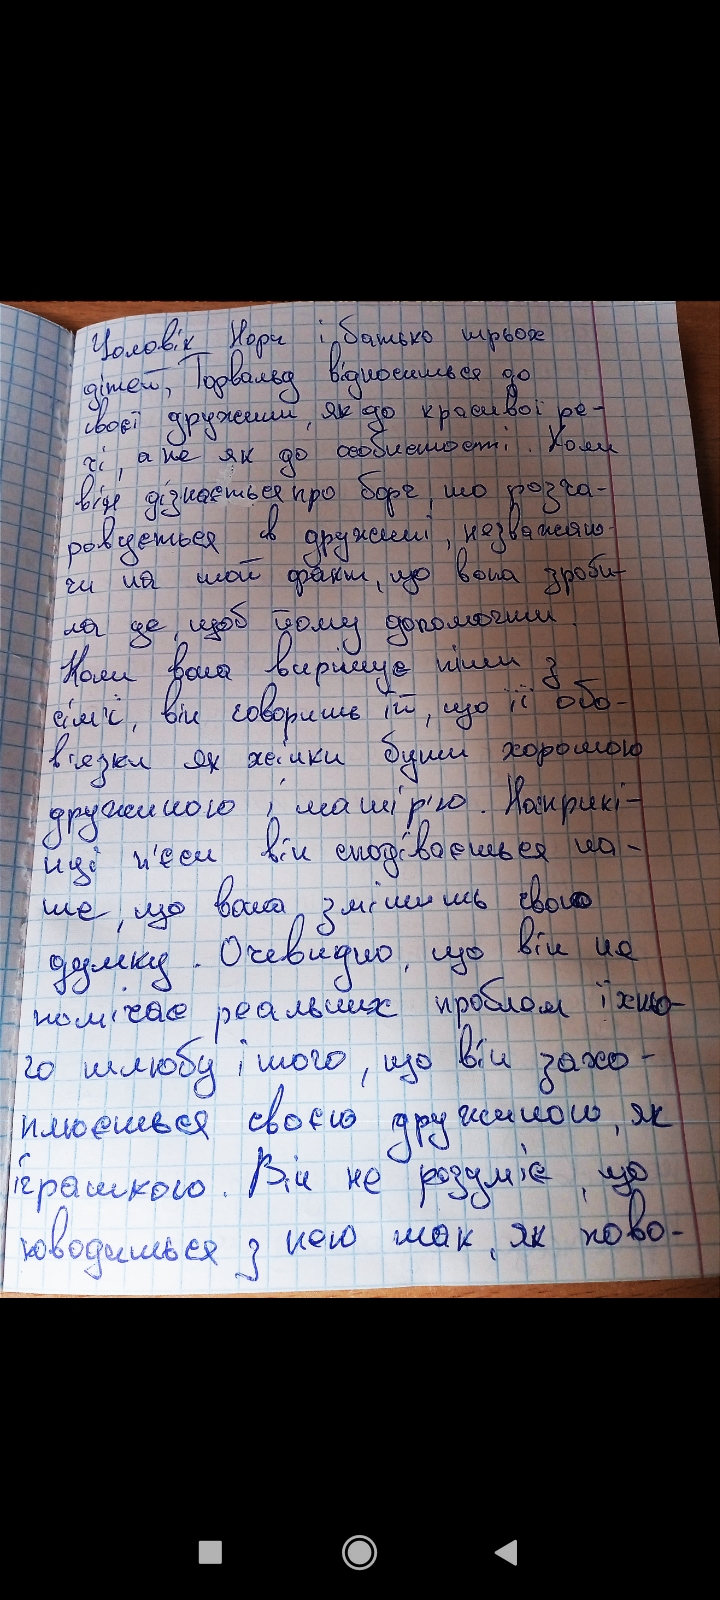 Чоловік Нори і батько трьох
дітей, Торвальд відноситься до
своєї дружини, як до красивої ре-
чі, а не як до особистості. Коли
він дізнається про борг, то розча-
ровується в дружині, незважаю-
чи на той факт, що вона зроби-
ла це, щоб йому допомогти.
Коли вона вирішує піти з
сім'ї, він говорить їй, що її обо-
в'язки як жінки бути хорошою
дружиною і матір'ю. Наприкі-
нці п'єси він сподівається ли-
ше, що вона змінить свою
думку. Очевидно, що він не
помічає реальних проблем їхньо-
го шлюбу і того, що він захо-
плюється своєю дружиною, як
іграшкою. Він не розуміє, що
поводиться з нею так, як пово-